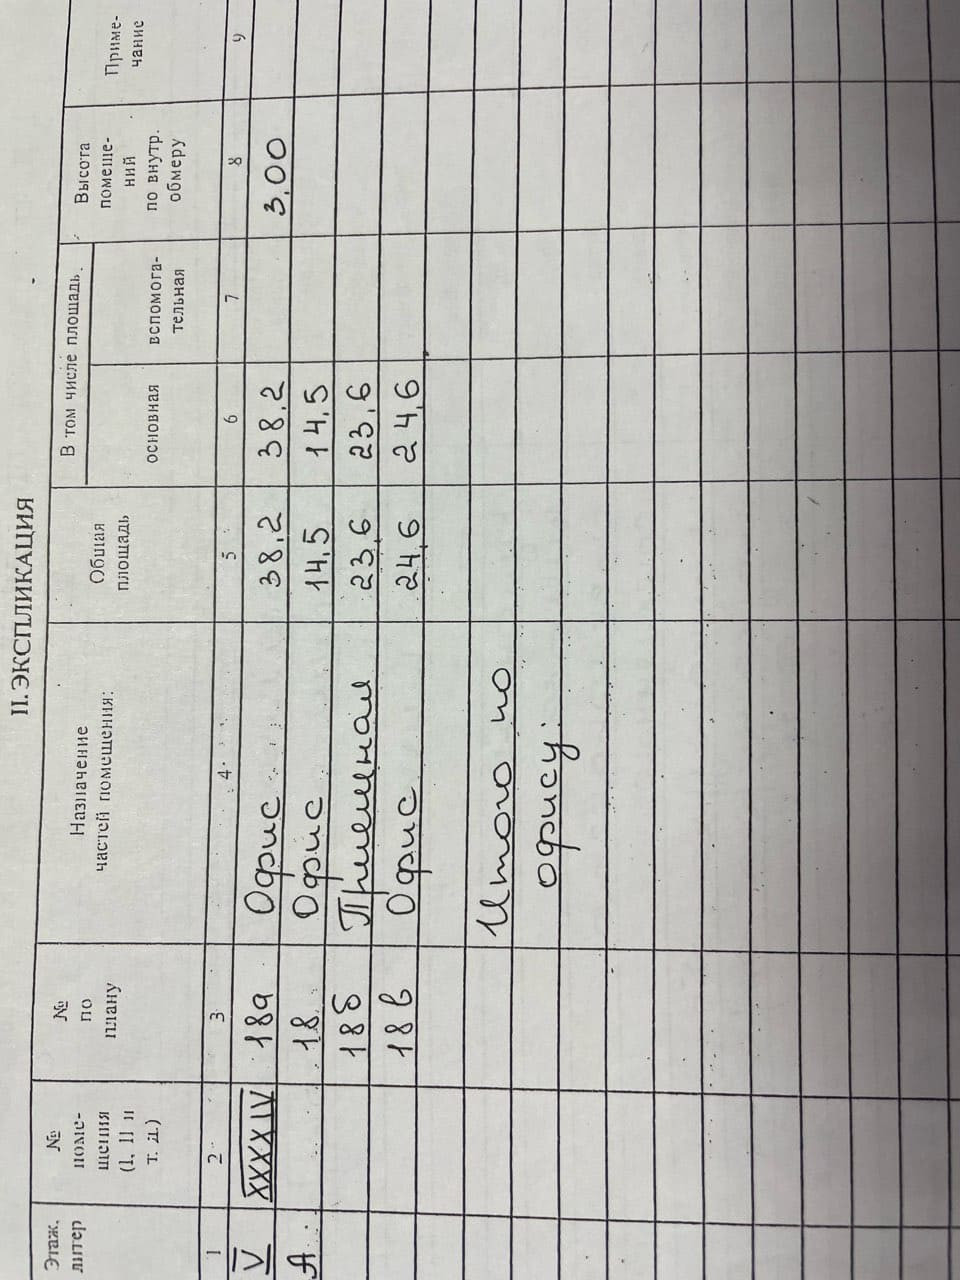 II. ЭКСПЛИКАЦИЯ
Этаж. литер | № поме-щения (I, II и т. д.) | № по плану | Назначение частей помещения: | Общая площадь | В том числе площадь: | Высота помеще-ний по внутр. обмеру | Приме-чание
основная | вспомога-тельная
1 | 2 | 3 | 4 | 5 | 6 | 7 | 8 | 9
V | XXXXIV | 18а | Офис | 38,2 | 38,2 | 3,00
А | 18 | Офис | 14,5 | 14,5
18б | Приемная | 23,6 | 23,6
18в | Офис | 24,6 | 24,6
Итого по
офису: